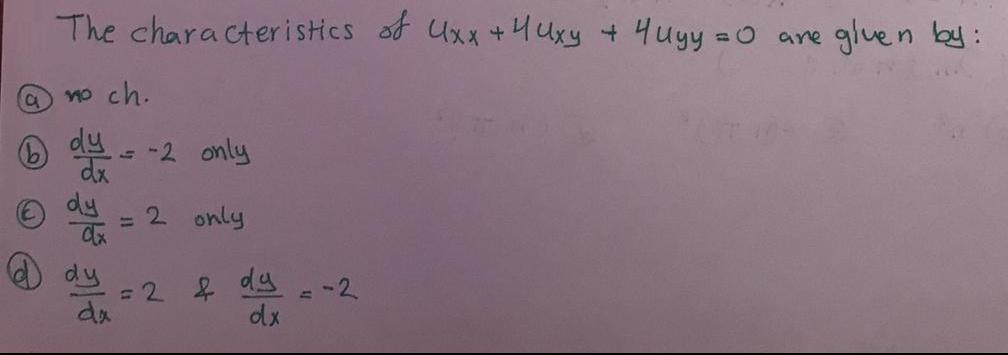 The characteristics of Uxx + 4Uxy + 4Uyy = 0 are given by:
(a) no ch.
(b) dy/dx = -2 only
(c) dy/dx = 2 only
(d) dy/dx = 2 & dy/dx = -2